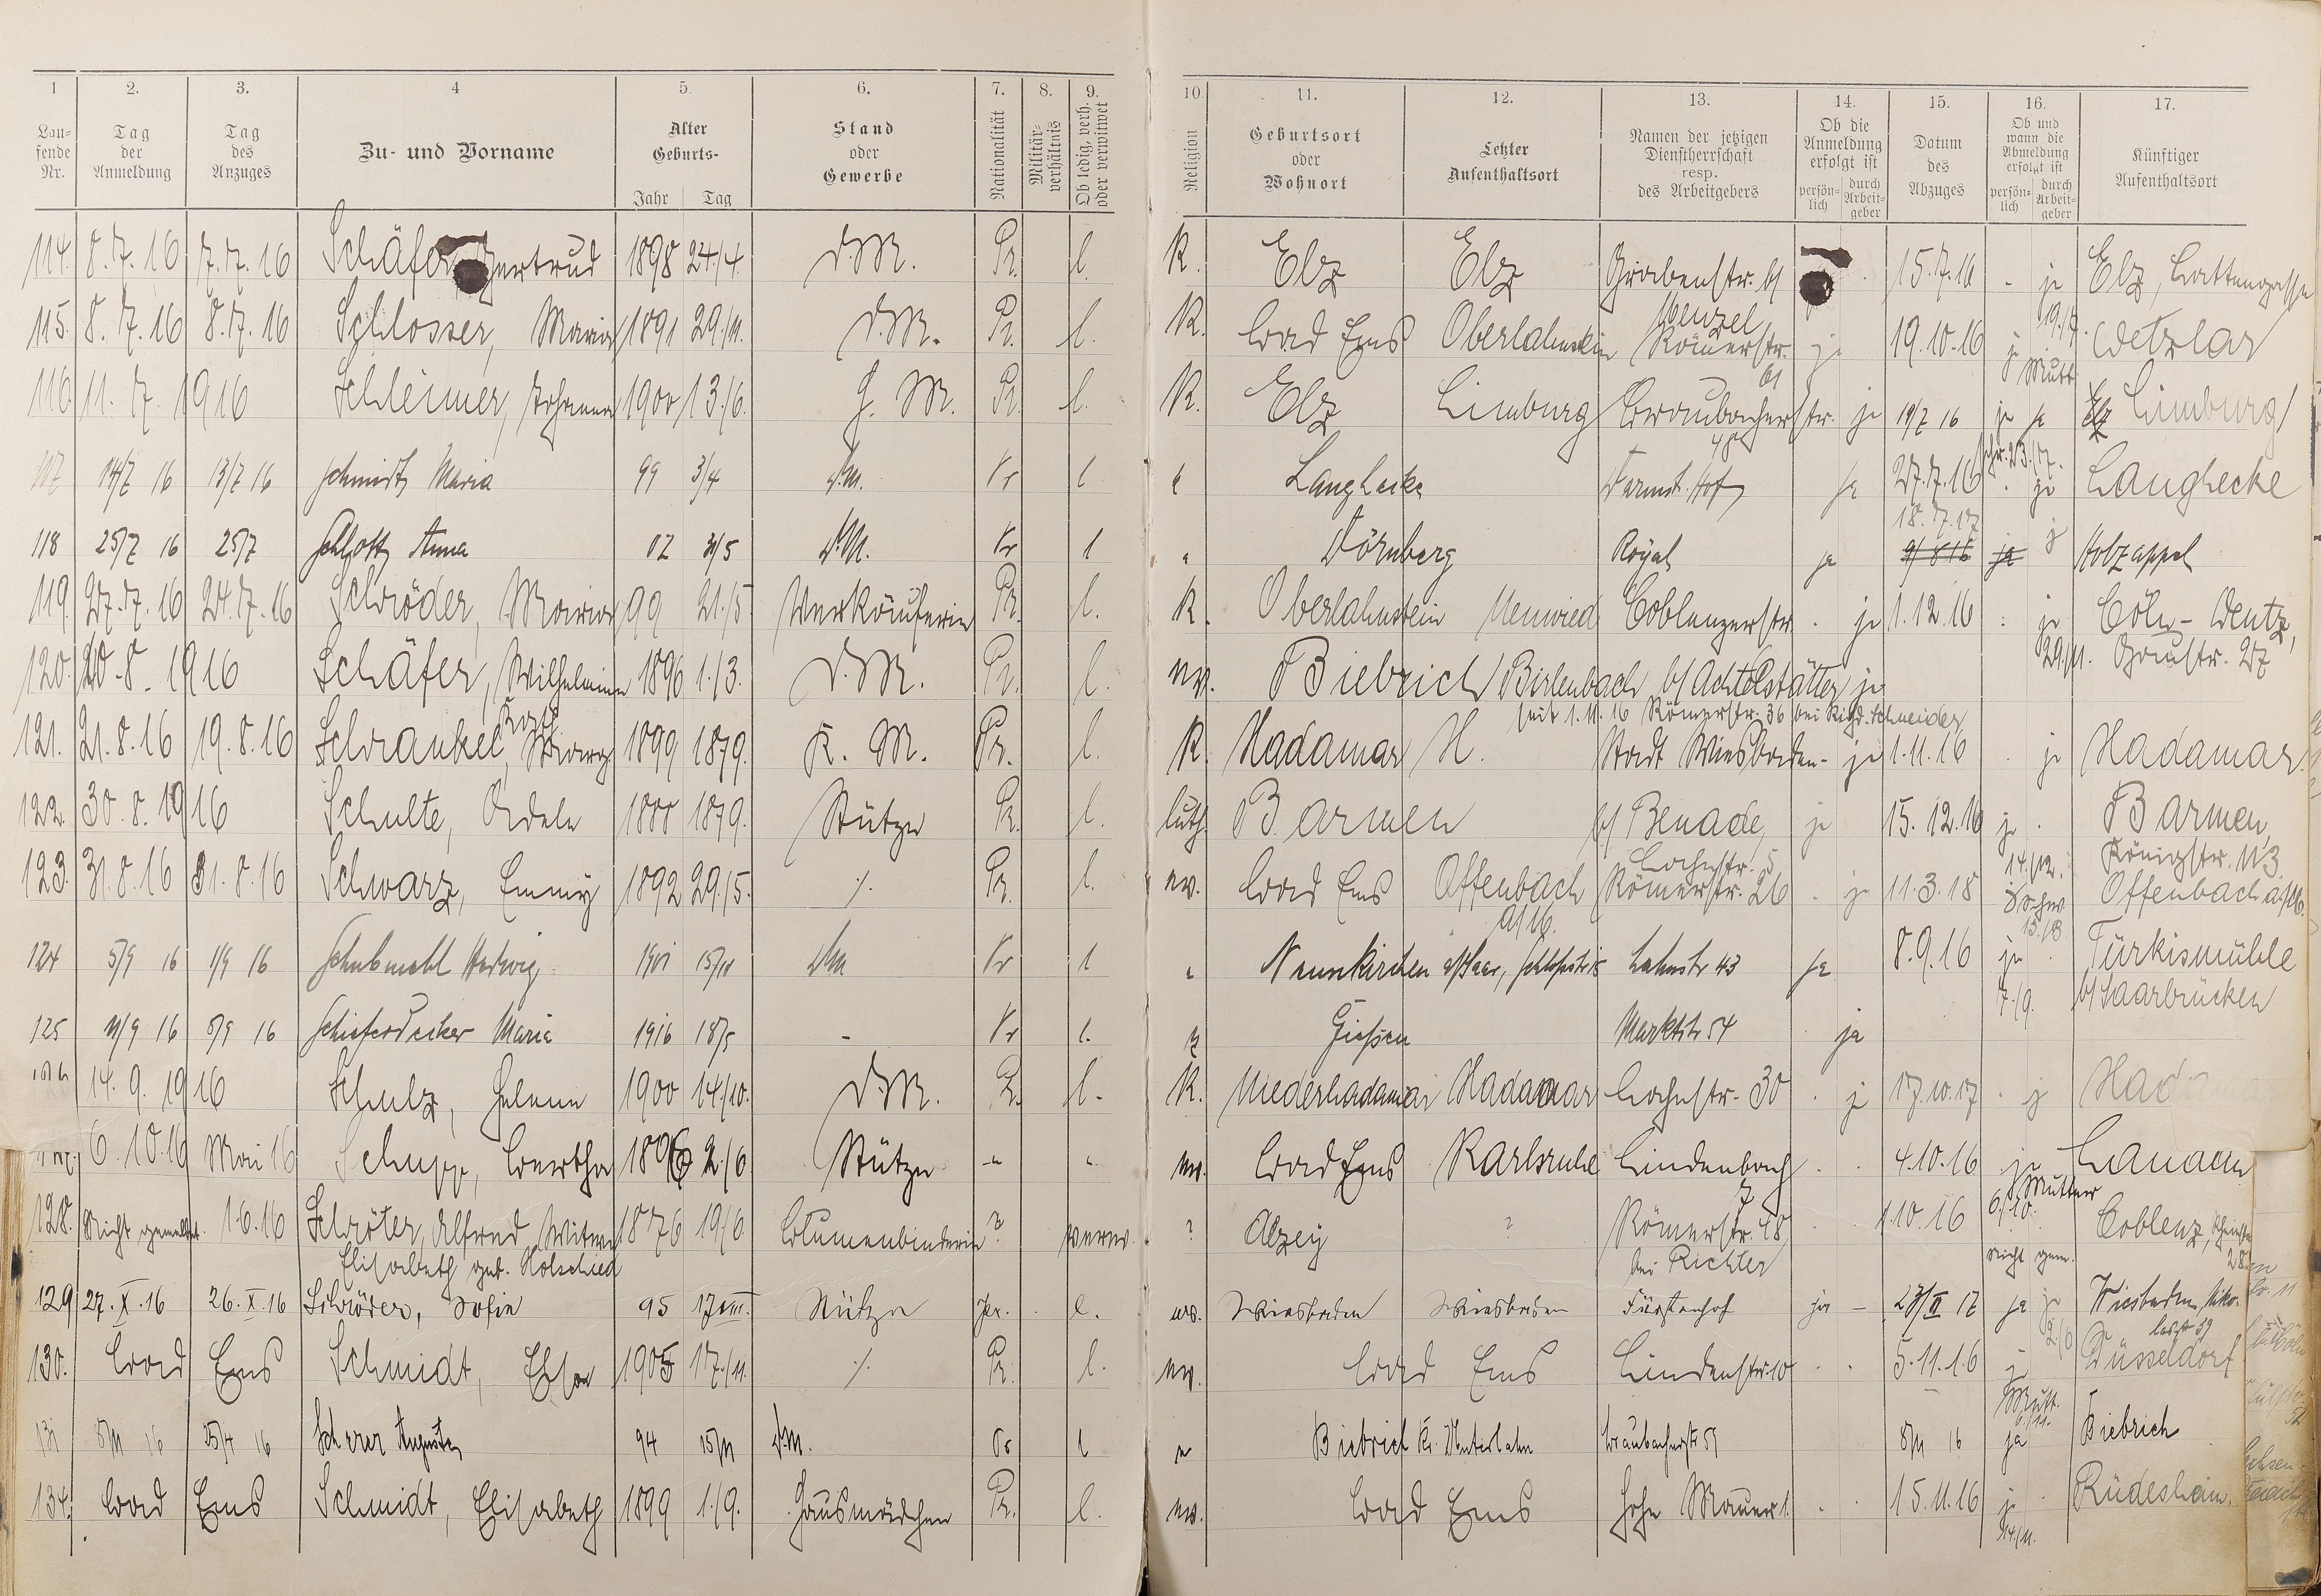 1 2. 3. 4 5. 6. 7. 8. 9. 10. 11. 12. 13. 14. 15. 16. 17.
Lau-fende Nr. Tag der Anmeldung Tag des Anzuges Zu- und Vorname Alter Geburts- Jahr Tag Stand oder Gewerbe Nationalität Militär-verhältnis Ob ledig, verh. oder verwitwet Religion Geburtsort oder Wohnort Letzter Aufenthaltsort Namen der jetzigen Dienstherrschaft resp. des Arbeitgebers Ob die Anmeldung erfolgt ist persön-lich durch Arbeit-geber Datum des Abzuges Ob und wann die Abmeldung erfolgt ist persön-lich durch Arbeit-geber Künftiger Aufenthaltsort
114. 8.7.16 7.7.16 Schäfer Gertrud 1898 24./4. D.M. Pr. l. K. Elz Elz Grabenstr. 61 15.7.16 - ja Elz, Lattengasse
19./7.
115. 8.7.16 8.7.16 Schlosser, Maria 1891 29./11. D.M. Pr. l. K. Bad Ems Oberlahnstein Wenzel Römerstr. 61 ja 19.10.16 ja Wetzlar
Mutt
116. 11.7.1916 Schleimer, Johanna 1900 13./6. H.M. Pr. l. K. Elz Limburg Braubacherstr. ja 19/7 16 ja ja Elz Limburg
117 14/7 16 13/7 16 Schmidt Maria 99 3/4 D.M. Pr l Langhecke Darmst. Hof ja 27.7.16 ja Langhecke
18.7.17
118 25/7 16 25/7 Schlott Anna 02 31/5 D.M. Pr l Dörnberg Royal ja 9/8 16 ja Holzappel
119. 27.7.16 24.7.16 Schröder, Maria 99 21./5. Verkäuferin Pr. l. K. Oberlahnstein Neuwied Coblenzerstr. ja 1.12.16 ja Cöln-Deutz,
29./11. Gaustr. 27
120. 20.8.1916 Schäfer, Wilhelmine 1896 1./3. D.M. Pr. l. ev. Biebrich Birlenbach b/ Achtelstätter ja
seit 1.11.16 Römerstr. 36 bei Rich. Schneider
Kath.
121. 21.8.16 19.8.16 Schrankel, Marg. 1899 18./9. K.M. Pr. l. K. Hadamar H. Stadt Wiesbaden - ja 1.11.16 ja Hadamar
122. 30.8.1916 Schulte, Adele 1888 18./9. Stütze Pr. l. luth. Barmen b/ Benade, ja 15.12.16 ja Barmen,
Lahnstr. 5 14./12. Königstr. 113
123. 31.8.16 31.8.16 Schwarz, Emmy 1892 29./5. ./. Pr. l. ev. Bad Ems Offenbach a/M. Römerstr. 26 ja 11.3.18 Offenbach a/M.
124 5/9 16 1/9 16 Schubmehl Hedwig 1901 15/11 DM Pr l Neunkirchen a/Saar, Schloßstr 15 Lahnstr 43 ja 8.9.16 ja Türkismühle
7./9. b/ Saarbrücken
125 11/9 16 5/9 16 Schieferdecker Marie 1916 18/5 - Pr l. Gießen Marktstr 54 ja
14.9.1916 Schulz, Helene 1900 14./10. D.M. Pr. l. K. Niederhadamar Hadamar Lahnstr. 30 ja 17.10.17 ja Had
6.10.16 Mai 16 Schupp, Bertha 1896 2./6 Stütze " " ev. Bad Ems Karlsruhe Lindenbach 7 4.10.16 ja Hanau
Mutter 6./10.
128. Nicht gemeldet. 1.6.16 Schröter, Alfred, Witwe 1876 19./6. Blumenbinderin ? verw. ? Alzey ? Römerstr. 48 1.10.16 Coblenz, Rheinstr. 28
Elisabeth geb. Holschied bei Richter nicht gem.
129 27.X.16 26.X.16 Schröder, Sofie 95 17/VIII. Stütze Pr. l. ev. Wiesbaden Wiesbaden Fürstenhof ja - 28/II 17 ja ja Wiesbaden, Niko-
lasstr 39
130. Bad Ems Schmidt, Elsa 1905 17./11. ./. Pr. l. ev. Bad Ems Lindenstr. 10 5.11.16 ja Düsseldorf
Mutt. 6./11.
131 8/11 16 25/4 16 Scherer Auguste 94 15/11 D.M. Pr l Biebrich Kr. Unterlahn Braubacherstr 59 8/11 16 ja Biebrich
134. Bad Ems Schmidt, Elisabeth 1899 1./9. Hausmädchen Pr. l. ev. Bad Ems Hohe Mauer 1. 15.11.16 ja Rüdesheim.
14./11.